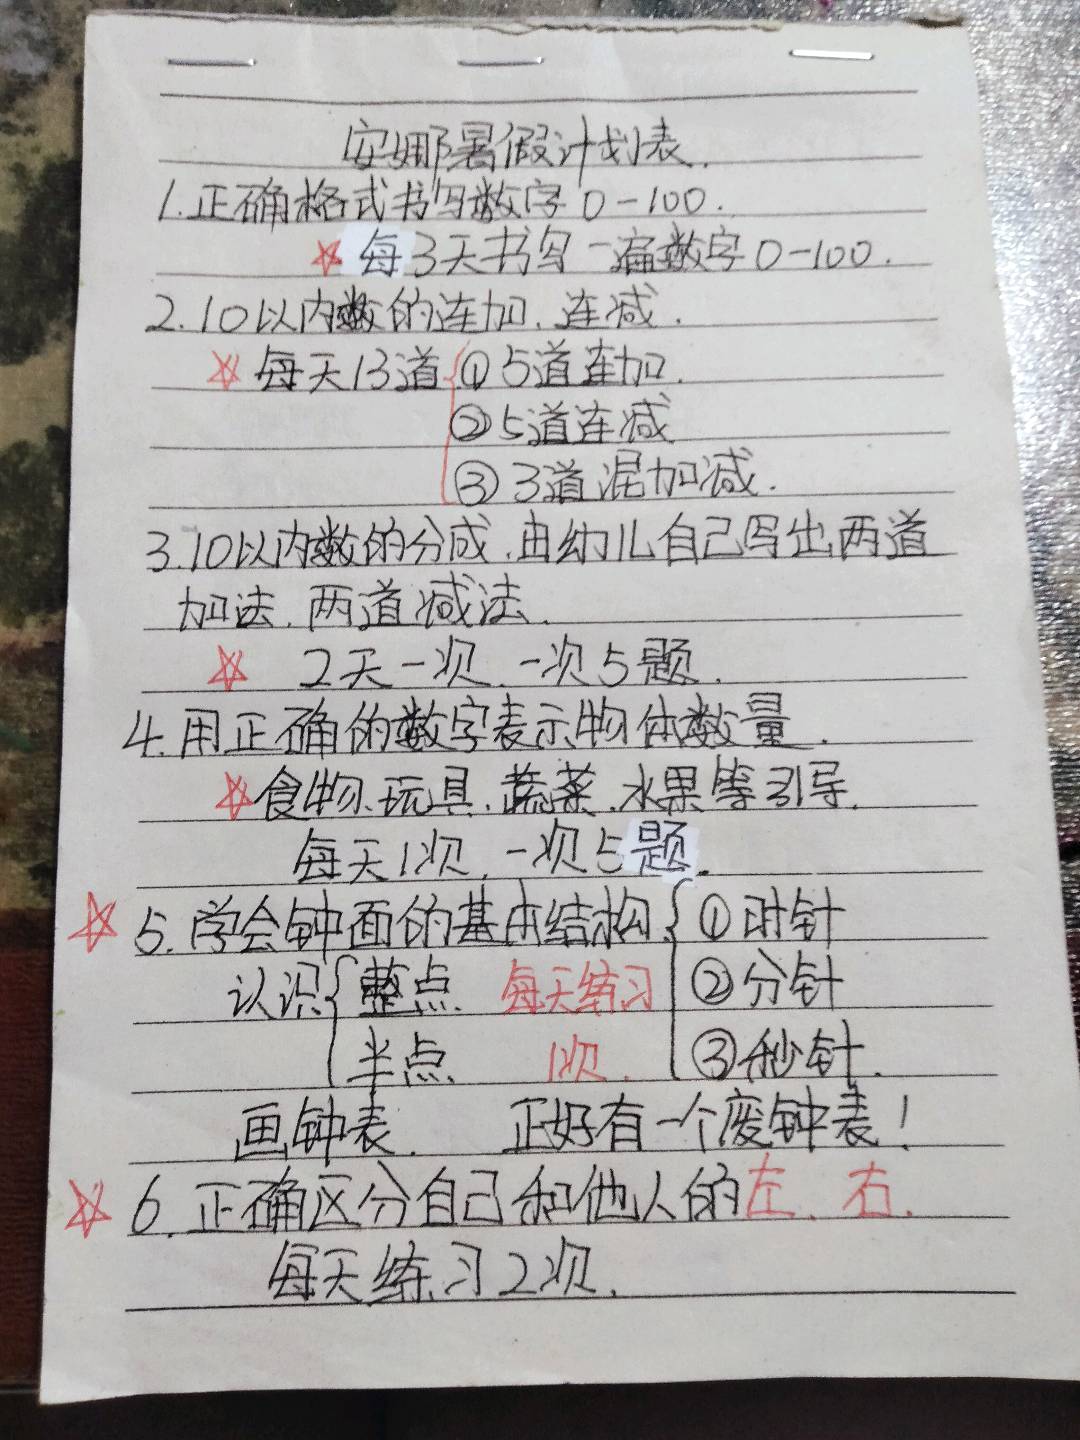 安娜暑假计划表.
1.正确格式书写数字0-100.
☆每3天书写一遍数字0-100.
2.10以内数的连加、连减.
☆每天13道{①5道连加.
②5道连减
③3道混加减.
3.10以内数的分成,由幼儿自己写出两道
加法、两道减法.
☆2天一次、一次5题.
4.用正确的数字表示物体数量.
☆食物、玩具、蔬菜、水果等引导.
每天1次,一次5题.
☆5.学会钟面的基本结构.{①时针
认识{整点. 每天练习 ②分针
半点. 1次. ③秒针.
画钟表. 正好有一个废钟表!
☆6.正确区分自己和他人的左、右.
每天练习2次.